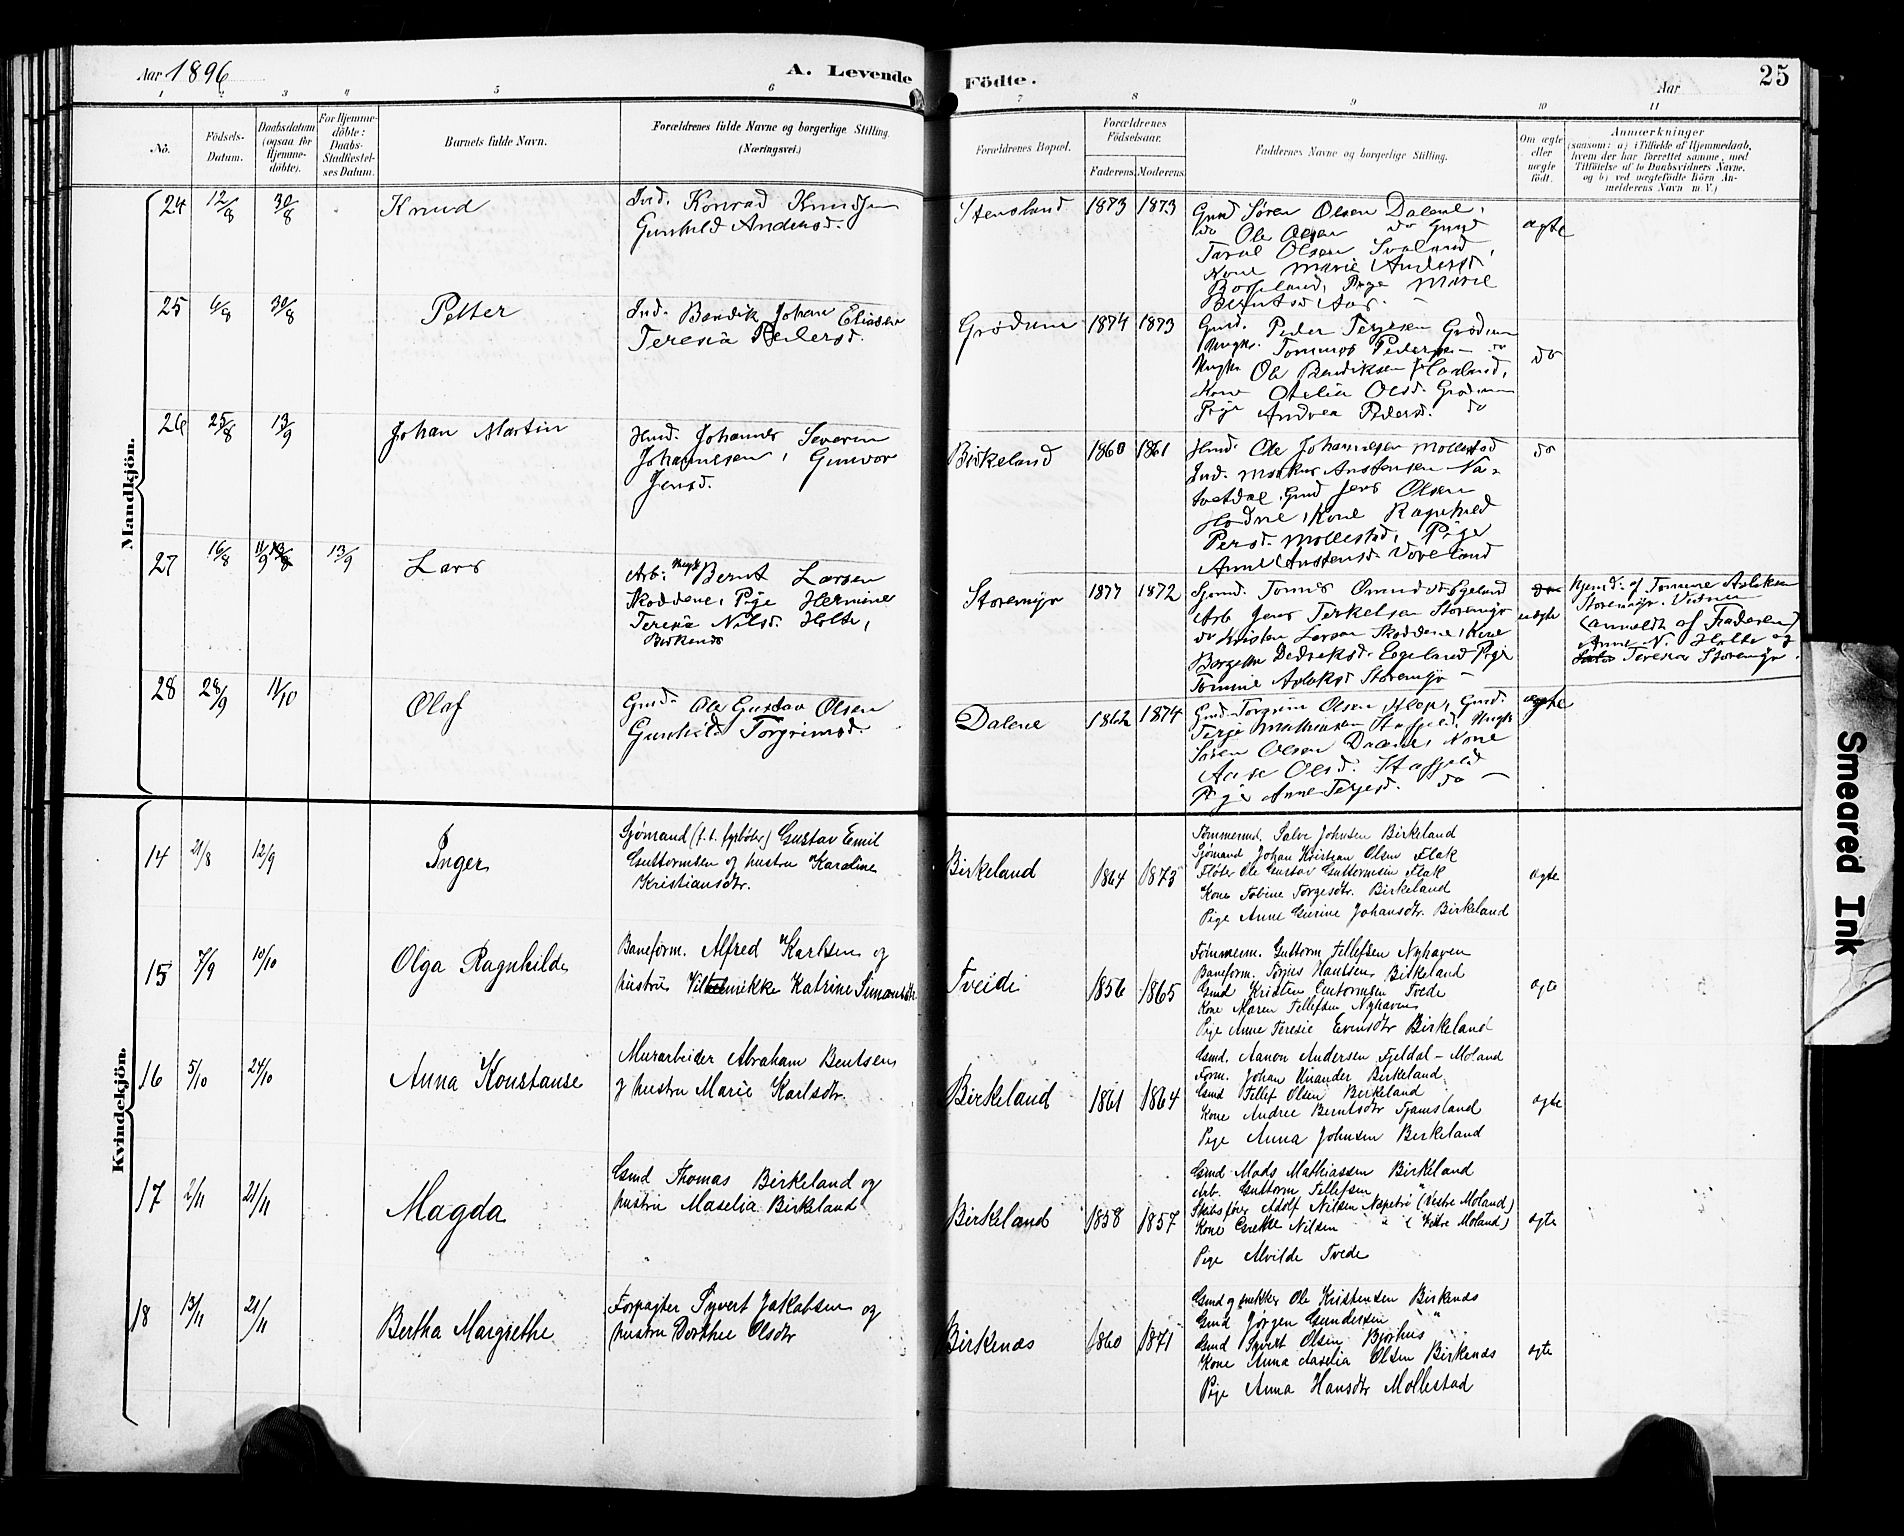 Aar 1896
A. Levende Födte.
Aar
25
1 2 3 4 5 6 7 8 9 10 11
No.
Födsels-Datum.
Daabsdatum (ogsaa for Hjemme-döbte).
For Hjemme-döbte: Daabs-Stadfæstel-ses Datum.
Barnets fulde Navn.
Forældrenes fulde Navne og borgerlige Stilling. (Næringsvei.)
Forældrenes Bopæl.
Forældrenes Födselsaar.
Faderens. Moderens.
Faddernes Navne og borgerlige Stilling.
Om ægte eller uægte födt.
Anmærkninger
(saasom: a) i Tilfælde af Hjemmedaab,
hvem der har forrettet samme, med
Tilföielse af to Daabsvidners Navne,
og b) ved uægtefödte Börn An-
melderens Navn m. V.)
Mandkjön.
24 12/8 30/8 Knud
Ind. Konrad Knudsen
Gunhild Andersd.
Stensland 1873 1873
Gmd Søren Olsen Dalene,
do Ole Olsen do Gmd
Taral Olsen Svaland,
Kone Marie Andersd.
Pige Marie
ægte
25 6/8 30/8 Petter
Ind. Bendik Johan Eliasen
Teresia Pedersd.
Grødum 1874 1873
Gmd. Peder Terjesen Grødum
Ungk. Tommas Pedersen do
Ungk. Ole Bendiksen
Kone Otelia Olsd. Grødum
Pige Andrea Pedersd. do
do
26 25/8 13/9 Johan Martin
Hmd. Johannes Severin
Johannesen, Gunvor
Jensd.
Birkeland 1860 1861
Hmd. Ole Johannesen Mollestad
Ind. Markus Anstensen Na-
Gmd Jens Olsen
Kone Ragnhild
Persd. Mollestad, Pige
Anne Anstensd.
do
27 16/8 11/9 13/9 Lars
Arb. Ungk Bernt Larsen
Skoddene, Pige Hermine
Teresia Nilsd. Holte,
Birkenes
Storemyr 1877 1872
Sjømd. Egeland
Arb Jens Terkelsen Storemyr
do Kristen Larsen Skoddene, Kone
Egeland Pige
Tomine Aslaksd Storemyr
uægte
Hjemd. af Tomine Aslaksen
Storemyr. Vidner
(anmeldt af Faderen)
Anne N. Holte og
Teresia Storemyr.
28 28/9 11/10 Olaf
Gmd. Ole Gustav Olsen
Gunhild Torgrimsd.
Dalene 1862 1874
Gmd. Torgrim Olsen Gmd.
Terje Mathiasen Ungk
Søren Olsen Dalene, Kone
Aase Olsd.
Pige Anne Terjesd. do
ægte
Kvindekjön.
14 21/8 12/9 Inger
Sjømand (f.t. fyrbøter) Gustav Emil
Guttormsen og hustru Karoline
Kristiansdtr.
Birkeland 1864 1873
Tømmermd. Salve Johnsen Birkeland
Sjømand Johan Kristian Olsen Flak
Fløter Ole Gustav Guttormsen Flak
Kone Tobine Torgesdtr. Birkeland
Pige Anne Gurine Johansdtr. Birkeland
ægte
15 7/9 10/10 Olga Ragnhilde
Baneform. Alfred Karlsen og
hustru Katrine Simonsdtr
Tveide 1856 1865
Tømmerm. Guttorm Tellefsen Nyhaven
Baneform. Tørjus Hansen Birkeland
Gmd Kristen Guttormsen Tvede
Kone Maren Tellefsen Nyhaven
Pige Anne Teresie Evensdtr Birkeland
ægte
16 5/10 24/10 Anna Konstanse
Murarbeider Abraham Bentsen
og hustru Marie Karlsdtr.
Birkeland 1861 1864
Gmd. Aanon Andersen Fjeldal - Moland
Form. Johan Unander Birkeland
Gmd Tellef Olsen Birkeland
Kone Andree Berntsdtr Tjamsland
Pige Anna Johnsen Birkeland
ægte
17 2/11 21/11 Magda
Gmd Thomas Birkeland og
hustru Maselia Birkeland
Birkeland 1858 1857
Gmd Mads Mathiassen Birkeland
Arb. Guttorm Tellefsen "
Skibsfører Adolf Nilsen (Vestre Moland)
Kone Grethe Nilsen " (Vestre Moland)
Pige Alvilde Tvede
ægte
18 13/11 21/11 Bertha Margrethe
Forpagter Syvert Jakobsen og
hustru Dorthee Olsdtr
Birkenæs 1860 1871
Gmd og snekker Ole Kristensen Birkenæs
Gmd Jörgen Gundersen "
Gmd Syvert Olsen Bjorhus
Kone Anna Aaselia Olsen Birkenæs
Pige Anna Hansdtr Mollestad
ægte
Smeared Ink